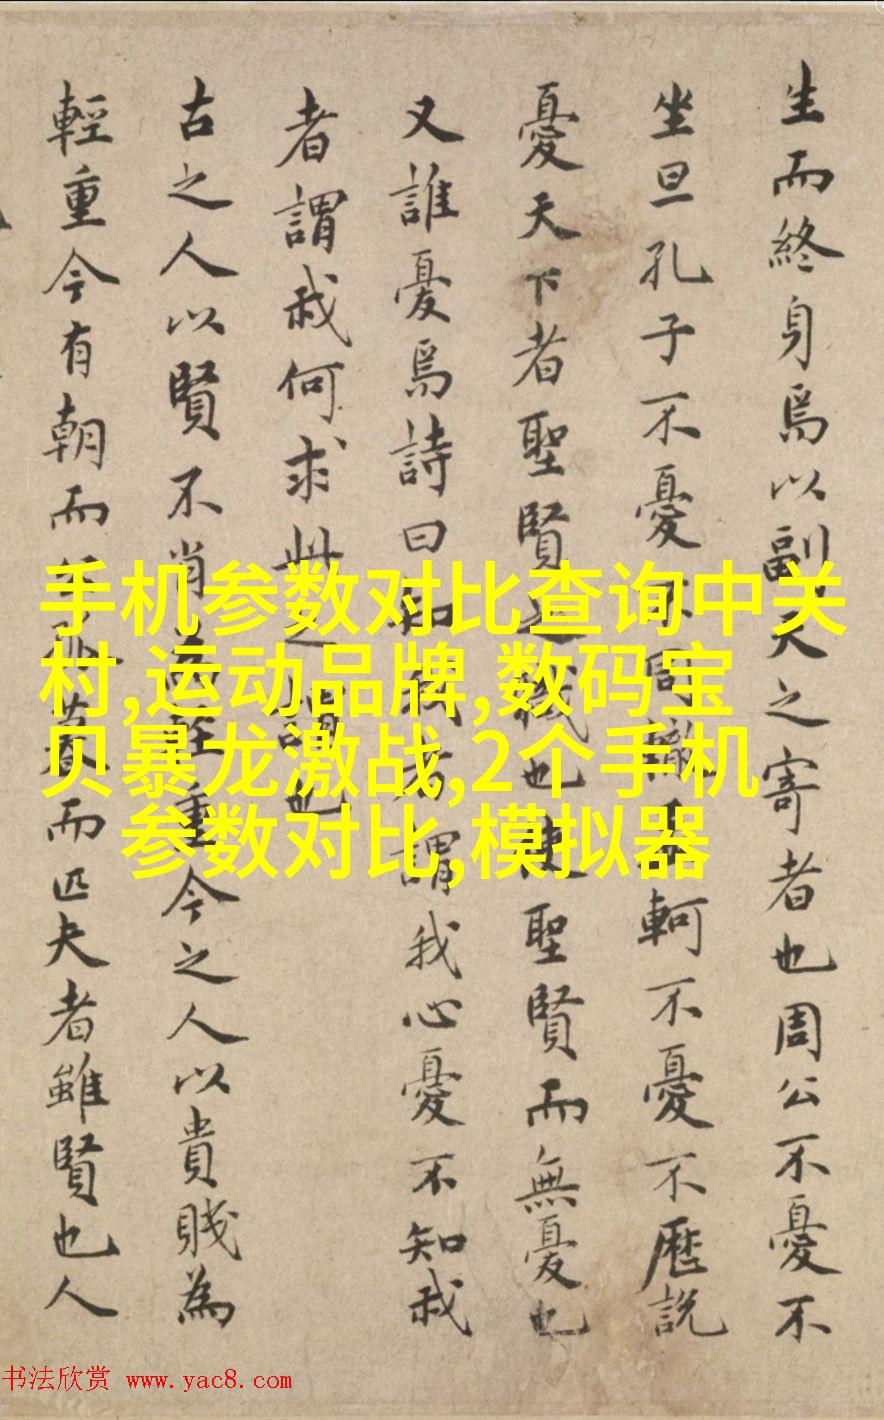 生而終身焉以副天之寄者也周公不憂不
坐旦孔子不憂不周轍孟軻不憂不歷說
憂天下者聖賢之職也使聖賢而無憂也
又誰憂焉詩曰知我者謂我心憂不知我
者謂我何求此之謂也
古之人以賢不肖為輕重今之人以貴賤為
輕重今有朝而公孤暮而匹夫者雖賢也人
手机参数对比查询中关
村,运动品牌,数码宝
贝暴龙激战,2个手机
参数对比,模拟器
书法欣赏 www.yac8.com